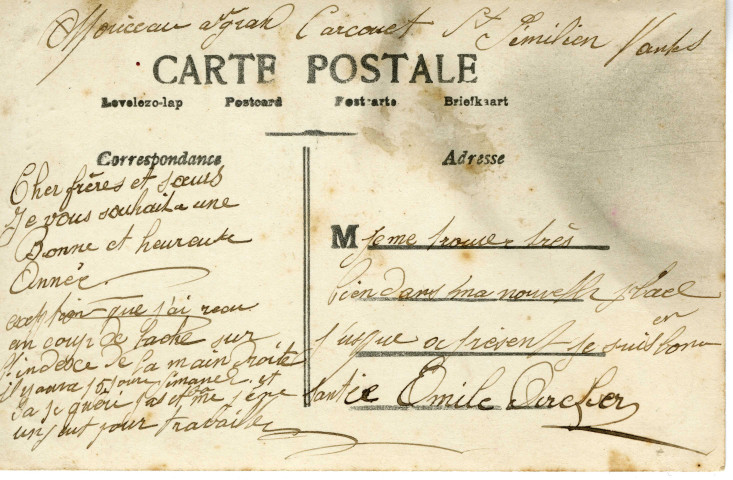 Carcouet St Similien Nantes
CARTE POSTALE
Levelezo-lap Postcard Postkarte Briefkaart
Correspondance
Cher frères et sœurs
Je vous souhaite une
Bonne et heureuse
Année
que j'ai recu
un coup de hache sur
l'indexe de la main droite
il y aura
gueri pas et
un peut pour travailler
Adresse
M je me trouve très
bien dans ma nouvelle place
jusque a présent je suis en bonne
santée Emile